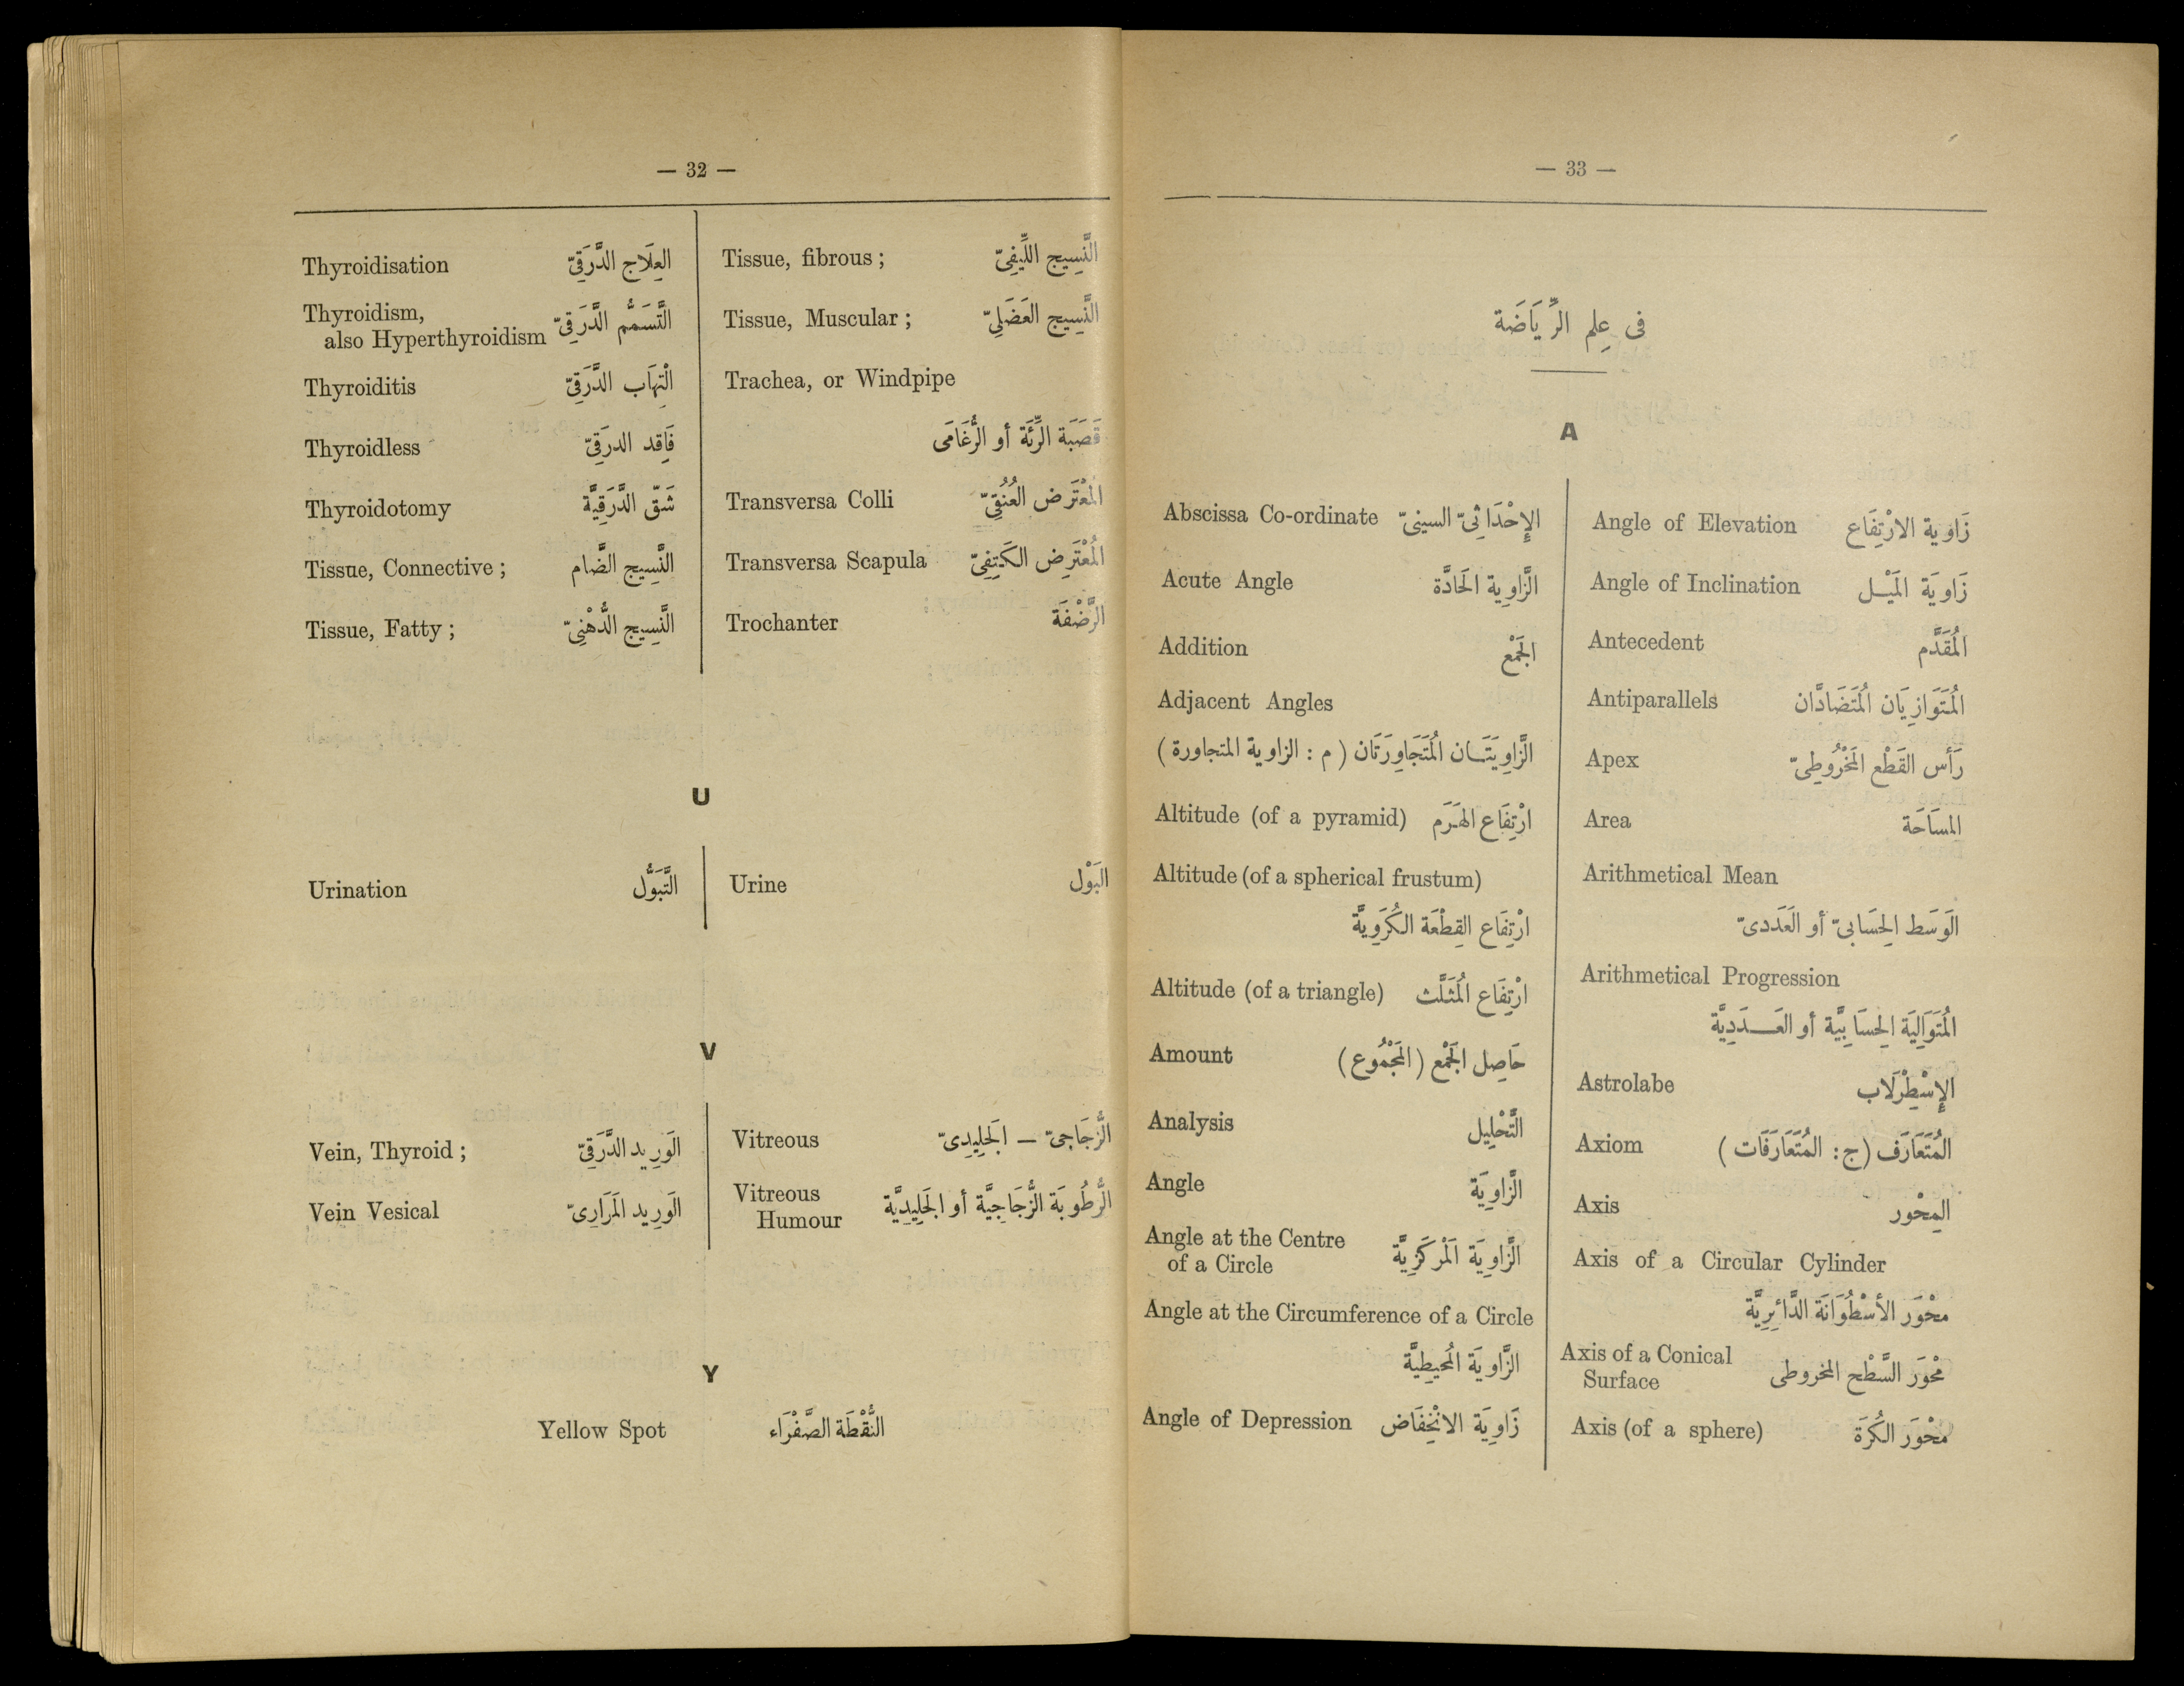 — 32 —
Thyroidisation العِلَاج الدَّرَقِىّ
Thyroidism,
also Hyperthyroidism التَّسَمُّم الدَّرَقِىّ
Thyroiditis الْتِهَاب الدَّرَقِىّ
Thyroidless فَاقِد الدرَقِىّ
Thyroidotomy شَقّ الدَّرَقِيَّة
Tissue, Connective ; النَّسِيج الضَّام
Tissue, Fatty ; النَّسِيج الدُّهْنِىّ
Tissue, fibrous ; النَّسِيج اللِّيفِىّ
Tissue, Muscular ; النَّسِيج العَضَلِىّ
Trachea, or Windpipe
قَصَبَة الرِّئَة أو الرُّغَامَى
Transversa Colli المُعْتَرِض العُنُقِىّ
Transversa Scapula المُعْتَرِض الكَتِفِىّ
Trochanter الرَّضْفَة
U
Urination التَّبَوُّل
Urine البَوْل
V
Vein, Thyroid ; الوَرِيد الدَّرَقِىّ
Vein Vesical الوَرِيد المَرَارِىّ
Vitreous الزُّجَاجِىّ – الجَلِيدِىّ
Vitreous
Humour الرُّطُوبَة الزُّجَاجِيَّة أو الجَلِيدِيَّة
Y
Yellow Spot النُّقْطَة الصَّفْرَاء
— 33 —
فى عِلم الرِّيَاضَة
A
Abscissa Co-ordinate الإِحْدَاثِىّ السينىّ
Acute Angle الزَّاوِية الحَادَّة
Addition الجَمْع
Adjacent Angles
الزَّاوِيَتَـان المُتَجَاوِرَتَان ( م : الزاوية المتجاورة )
Altitude (of a pyramid) ارْتِفَاع الهَرَم
Altitude (of a spherical frustum)
ارْتِفَاع القِطْعَة الكُرَوِيَّة
Altitude (of a triangle) ارْتِفَاع المُثَلَّث
Amount حَاصِل الجَمْع ( المَجْمُوع )
Analysis التَّحْلِيل
Angle الزَّاوِيَة
Angle at the Centre
of a Circle الزَّاوِيَة المَرْكَزِيَّة
Angle at the Circumference of a Circle
الزَّاوِيَة المُحِيطِيَّة
Angle of Depression زَاوِيَة الانْخِفَاض
Angle of Elevation زَاوِية الارْتِفَاع
Angle of Inclination زَاوِيَة المَيْـل
Antecedent المُقَدَّم
Antiparallels المُتَوَازِيَان المُتَضَادَّان
Apex رَأْس القَطْع المَخْرُوطِىّ
Area المسَاحَة
Arithmetical Mean
الوَسَط الحِسَابىّ أو العَدَدىّ
Arithmetical Progression
المُتَوَالِيَة الحِسَابِيَّة أو العَـدَدِيَّة
Astrolabe الإِسْطِرْلَاب
Axiom المُتَعَارَف ( ج : المُتَعَارَفَات )
Axis المِحْوَر
Axis of a Circular Cylinder
محْوَر الأُسْطُوَانَة الدَّائِرِيَّة
Axis of a Conical
Surface محْوَر السَّطْح المخروطى
Axis (of a sphere) محْوَر الكُرَة